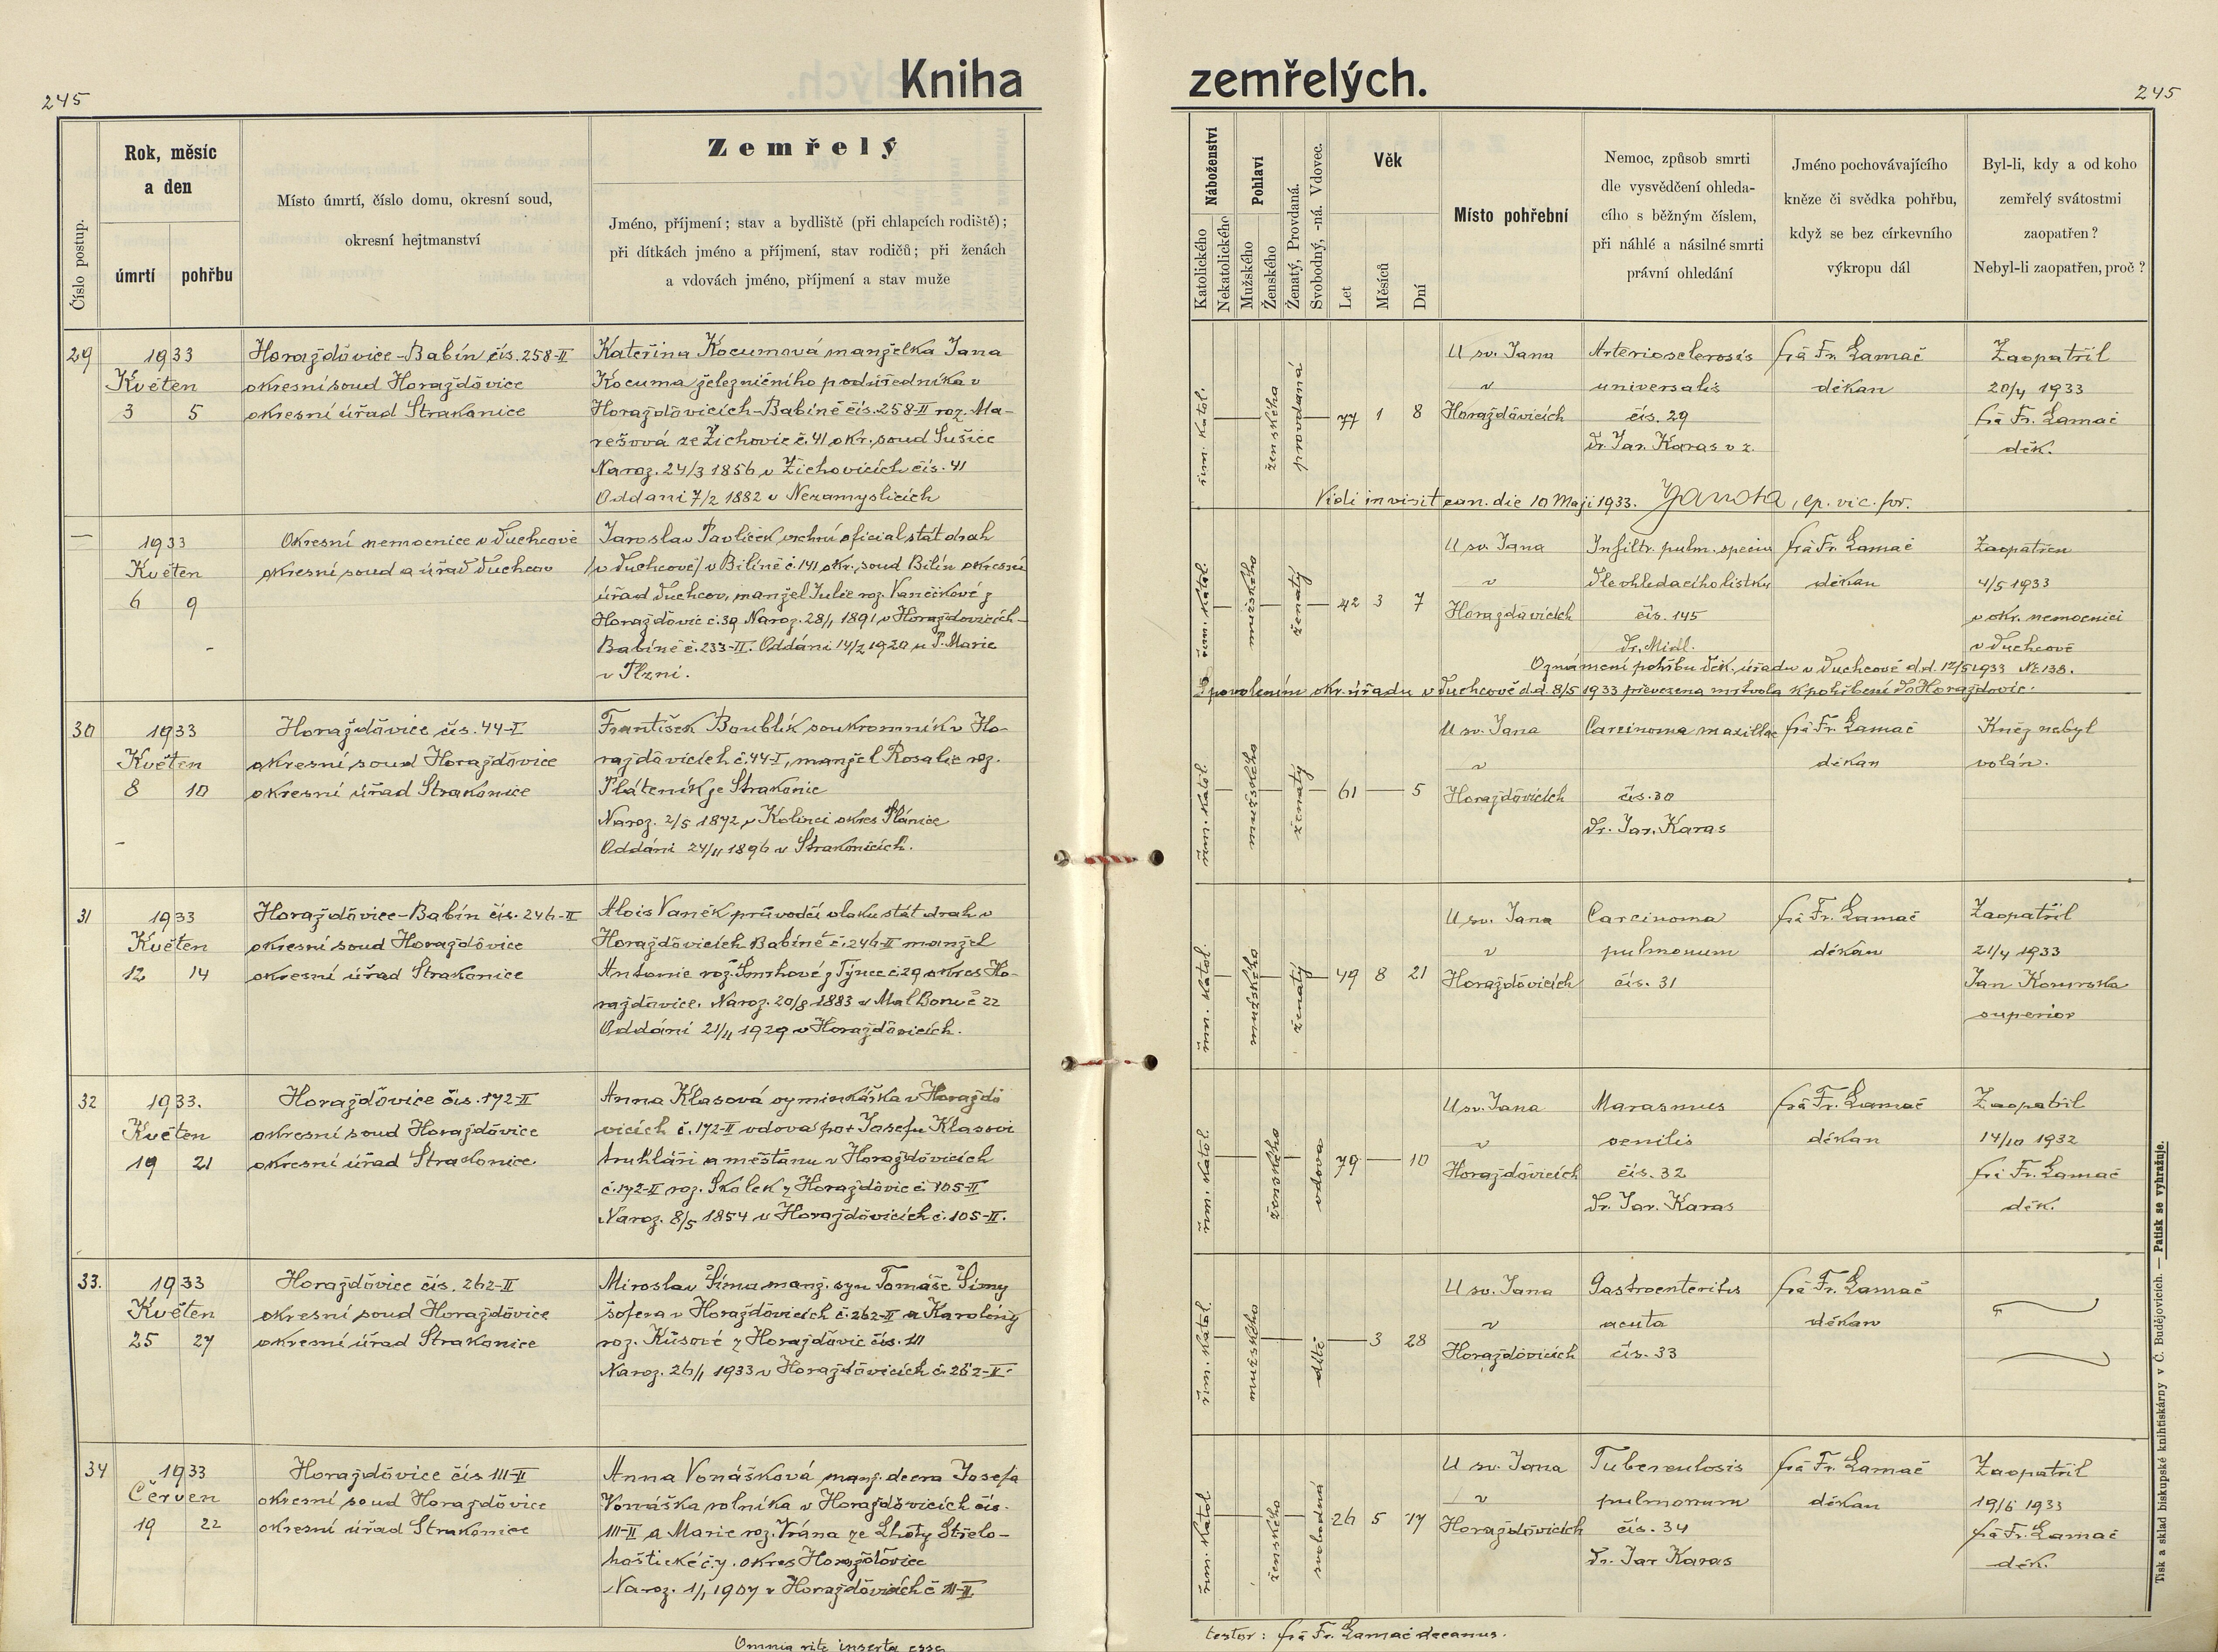 245
Kniha
zemřelých.
245
Číslo postup.
Rok, měsíc
a den
úmrtí
pohřbu
Místo úmrtí, číslo domu, okresní soud,
okresní hejtmanství
Zemřelý
Jméno, příjmení; stav a bydliště (při chlapcích rodiště);
při dítkách jméno a příjmení, stav rodičů; při ženách
a vdovách jméno, příjmení a stav muže
Náboženství
Katolického
Nekatolického
Pohlaví
Mužského
Ženského
Ženatý, Provdaná.
Svobodný, -ná. Vdovec.
Věk
Let
Měsíců
Dní
Místo pohřební
Nemoc, způsob smrti
dle vysvědčení ohleda-
cího s běžným číslem,
při náhlé a násilné smrti
právní ohledání
Jméno pochovávajícího
kněze či svědka pohřbu,
když se bez církevního
výkropu dál
Byl-li, kdy a od koho
zemřelý svátostmi
zaopatřen?
Nebyl-li zaopatřen, proč?
29
1933
Květen
3 5
Horažďovice-Babín čís. 258-II
okresní soud Horažďovice
okresní úřad Strakonice
Kateřina Kocumová manželka Jana
Kocuma železničního podúředníka v
Horažďovicích-Babíně čís. 258-II roz. Ma-
rešová ze Žichovic č. 41 okr. soud Sušice
Naroz. 24/3 1856 v Žichovicích čís. 41
Oddaní 7/2 1882 v Nezamyslicích
řím. katol.
ženského
provdaná
77 1 8
U sv. Jana
v
Horažďovicích
Arteriosclerosis
universalis
čís. 29
Dr. Jar. Karas v z.
frà Fr. Lamač
děkan
Zaopatřil
20/4 1933
frà Fr. Lamač
děk.
Vidi in visit. can. die 10 Maji 1933. , ep. vic. for.
—
1933
Květen
6 9
Okresní nemocnice v Duchcově
okresní soud a úřad Duchcov
Jaroslav Pavlíček vrchní oficial stát drah
/v Duchcově/ v Bílině č. 141 okr. soud Bílin okresní
úřad Duchcov, manžel Julie roz. Vančíkové z
Horažďovic č. 39 Naroz. 28/1 1891 v Horažďovicích-
Babíně č. 233-II. Oddáni 14/2 1920 u P. Marie
v Plzni.
řím. katol.
mužského
ženatý
42 3 7
U sv. Jana
v
Horažďovicích
Infiltr. pulm. specif
Dle ohledacího lístku
čís. 145
Dr. Midl.
frà Fr. Lamač
děkan
Zaopatřen
4/5 1933
v okr. nemocnici
v Duchcově
Oznámení pohřbu děk. úřadu v Duchcově d.d. 12/5 1933 No 138.
S povolením okr. úřadu v Duchcově d.d. 8/5 1933 převezena mrtvola k pohřbení do Horažďovic.
30
1933
Květen
8 10
Horažďovice čís. 44-I
okresní soud Horažďovice
okresní úřad Strakonice
František Boublík soukromník v Ho-
ražďovicích č. 44-I, manžel Rosalie roz.
Pláteník ze Strakonic
Naroz. 2/5 1872 v Kolinci okres Plánice
Oddáni 24/11 1896 v Strakonicích.
řím. katol.
mužského
ženatý
61 — 5
U sv. Jana
v
Horažďovicích
Carcinoma maxillae
čís. 30
Dr. Jar. Karas
frà Fr. Lamač
děkan
Kněz nebyl
volán.
31
1933
Květen
12 14
Horažďovice-Babín čís. 246-II
okresní soud Horažďovice
okresní úřad Strakonice
Alois Vaněk průvodčí vlaku stát drah v
Horažďovicích Babíně č. 246-II manžel
Antonie roz. Smrhové z Týnce č. 29 okres Ho-
ražďovice. Naroz. 20/8 1883 v Mal Boru č 22
Oddáni 21/11 1929 v Horažďovicích.
řím. katol.
mužského
ženatý
49 8 21
U sv. Jana
v
Horažďovicích
Carcinoma
pulmonum
čís. 31
frà Fr. Lamač
děkan
Zaopatřil
21/4 1933
Jan
superior
32
1933.
Květen
19 21
Horažďovice čís. 172-II
okresní soud Horažďovice
okresní úřad Stradonice.
Anna Klasová výminkářka v Horažďo
vicích č. 172-II vdova po + Josefu Klasovi
truhláři a měšťanu v Horažďovicích
č. 172-II roz. Skolek z Horažďovic č. 105-II
Naroz. 8/5 1854 v Horažďovicích č. 105-II.
řím. katol.
ženského
vdova
79 — 10
U sv. Jana
v
Horažďovicích
Marasmus
senilis
čís. 32
Dr. Jar. Karas
frà Fr. Lamač
děkan
Zaopatřil
14/10 1932
frà Fr. Lamač
děk.
33.
1933
Květen
25 27
Horažďovice čís. 262-II
okresní soud Horažďovice
okresní úřad Strakonice
Miroslav Šíma manž. syn Tomáše Šímy
šofera v Horažďovicích č. 262-II a Karoliny
roz. Kůsové z Horažďovic čís. 111
Naroz. 26/1 1933 v Horažďovicích č. 262-II.
řím. katol.
mužského
dítě
— 3 28
U sv. Jana
v
Horažďovicích
Gastroenteritis
acuta
čís. 33
frà Fr. Lamač
děkan
34
1933
Červen
19 22
Horažďovice čís 111-II
okresní soud Horažďovice
okresní úřad Strakonice
Anna Vonášková manž. dcera Josefa
Vonáška rolníka v Horažďovicích čís.
111-II a Marie roz. Vrána ze Lhoty Střelo-
hoštické č. 7. okres Horažďovice
Naroz. 1/1 1907 v Horažďovicích č 111-II
řím. katol
ženského
svobodná
26 5 17
U sv. Jana
v
Horažďovicích
Tuberculosis
pulmonum
čís. 34
Dr. Jar Karas
frà Fr. Lamač
děkan
Zaopatřil
19/6 1933
frà Fr. Lamač
děk.
Omnia rite inserta esse
testor: frà Fr. Lamač decanus.
Tisk a sklad biskupské knihtiskárny v Č. Budějovicích. — Patisk se vyhražuje.